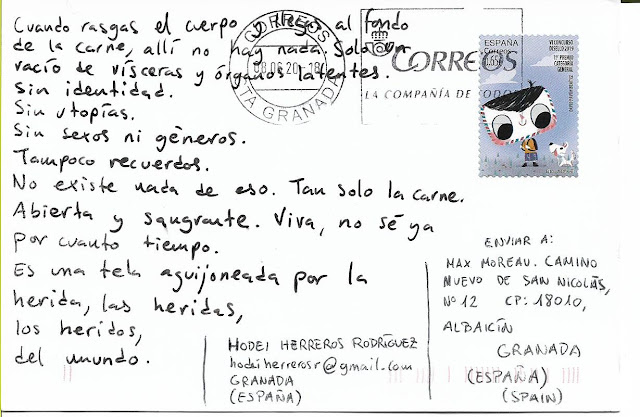 Cuando rasgas el cuerpo y llegas al fondo
de la carne, allí no hay nada. Solo un
vacío de vísceras y órganos latentes.
Sin identidad.
Sin utopías.
Sin sexos ni géneros.
Tampoco recuerdos.
No existe nada de eso. Tan solo la carne.
Abierta y sangrante. Viva, no sé ya
por cuanto tiempo.
Es una tela aguijoneada por la
herida, las heridas,
los heridos,
del mundo.
HODEI HERREROS RODRÍGUEZ
hodeiherrerosr@gmail.com
GRANADA
(ESPAÑA)
CORREOS
GRANADA
CORREOS
LA COMPAÑÍA DE TODOS
ESPAÑA
CORREOS
VII CONCURSO
DISELLO 2019
1er PREMIO
CATEGORÍA
GENERAL
ENVIAR A:
MAX MOREAU. CAMINO
NUEVO DE SAN NICOLÁS,
Nº 12 CP: 18010,
ALBAICÍN
GRANADA
(ESPAÑA)
(SPAIN)